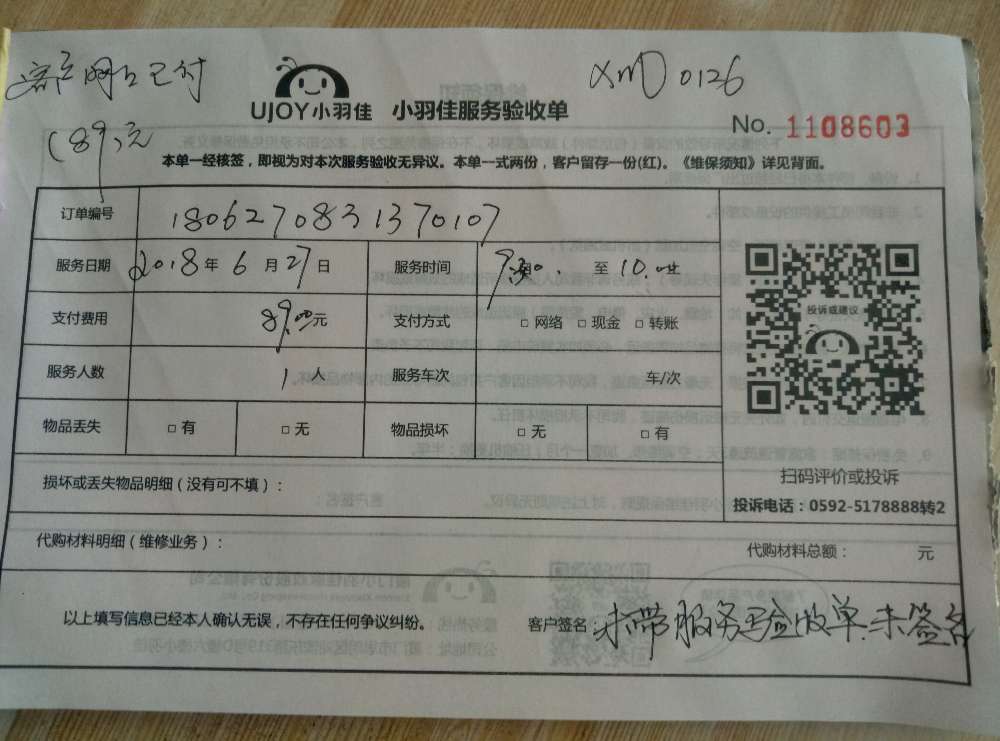 客户网上已付
(89)元
XMD 0126
UJOY小羽佳 小羽佳服务验收单
No. 1108603
本单一经核签，即视为对本次服务验收无异议。本单一式两份，客户留存一份(红)。《维保须知》详见背面。
订单编号 1806270831370107
服务日期 2018年6月27日 服务时间 9:30 至 10:00
支付费用 89.00元 支付方式 □ 网络 □ 现金 □ 转账
服务人数 1 人 服务车次 车/次
物品丢失 □ 有 □ 无 物品损坏 □ 无 □ 有
投诉或建议
扫码评价或投诉
投诉电话：0592-5178888转2
损坏或丢失物品明细（没有可不填）：
代购材料明细（维修业务）： 代购材料总额： 元
以上填写信息已经本人确认无误，不存在任何争议纠纷。 客户签名：未带服务验收单.未签名